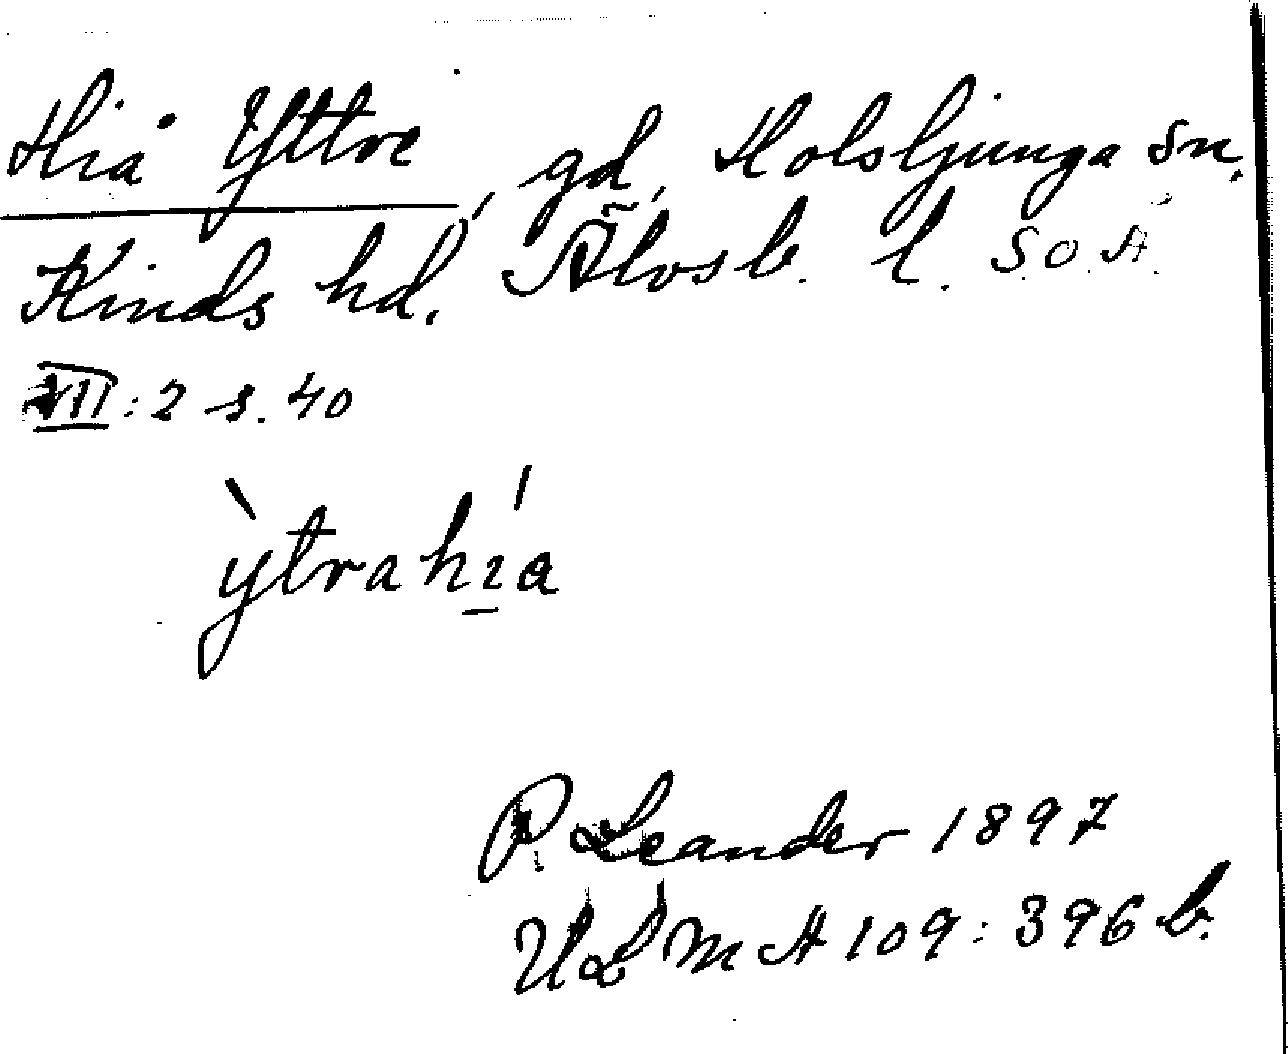 Hiå Yttre, gd, Holsljunga sn.
Kinds hd. Älvsb. l. SOÄ
VII: 2 s. 40
ỳtrahɩ́a
P. Leander 1897
ULMA 109: 396 b.